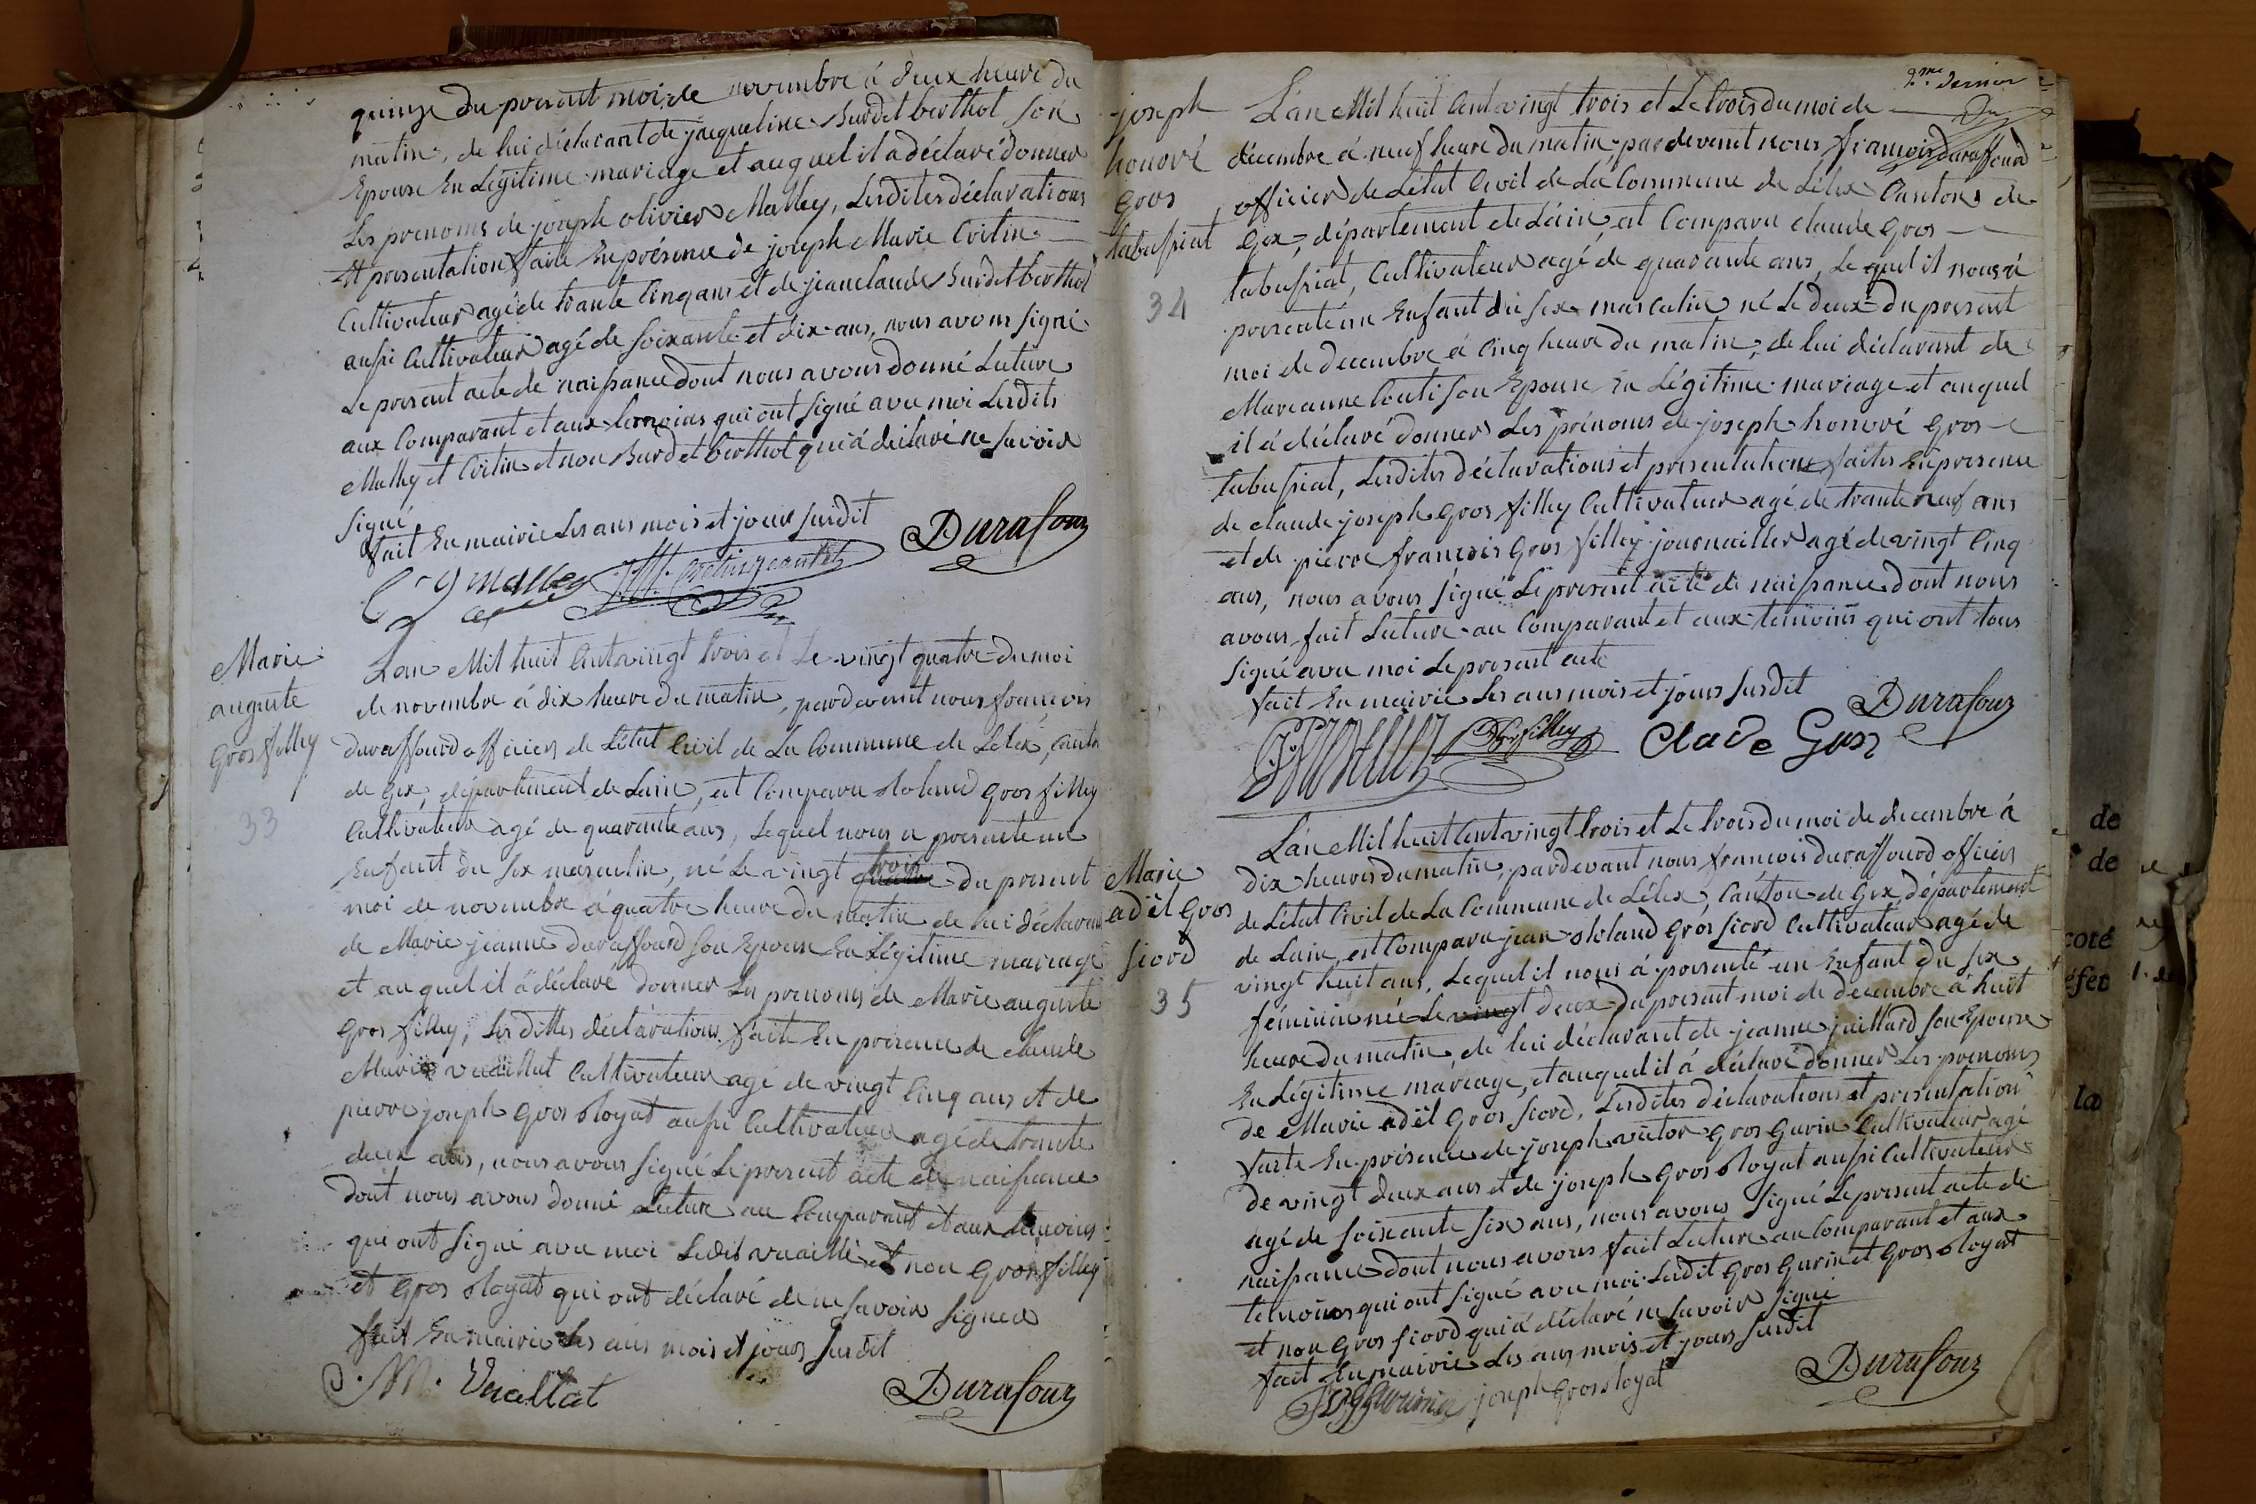 quinze du present moi de novembre à deux heure du
matin, de lui déclarant de jacqueline Burdet berthot son
Epouse En Légitime mariage et auquel il a déclaré donner
Les prenoms de joseph olivier Malley, Lesdites déclarations
Et presentation faite En présence de joseph Marie Coitin
Cultivateur agé de trante Cinq ans et de jean claude Burdet berthot
aussi Cultivateur agé de soixante et dix ans, nous avons signé
Le present acte de naissance dont nous avons donné Lecture
aux Comparant et aux temoins qui ont signé avec moi Lesdits
Malley et Coitin et non Burdet berthot qui à déclaré ne savoir
signé
fait En mairie Les ans mois et jour susdit
Malley Durafour
Marie
auguste
Gros filley
33
Lan Mil huit Cent vingt trois et Le vingt quatre du moi
de novembre à dix heure du matin, pardevent nous francois
duraffourd officier de Létat Civil de La Commune de Lélex, Canton
de Gex, département de Lain, est Comparu Roland Gros filley
Cultivateur agé de quarante ans, Lequel nous a presenté un
Enfant du sex masculin, né Le vingt trois du present
moi de novembre à quatre heure du matin de lui déclarant
de Marie jeanne duraffourd son Epouse En Légitime mariage
et auquel il à déclaré donner Les prenoms de Marie auguste
Gros filley, Lesdittes déclarations faite En présence de claude
Marie vuaillat Cultivateur agé de vingt Cinq ans et de
pierre joseph Gros Royat aussi Cultivateur agé de trante
deux ans, nous avons signé Le present acte de naissance
dont nous avons donné Lecture au Comparant et aux temoins
qui ont signé avec moi Ledit vuaillat et non Gros filley
et Gros Royat qui ont déclaré de ne savoir signer
fait En mairie Les ans mois et jours susdit
C. M. Vuaillat Durafour
2me dernier
joseph
honoré
Gros
tabussiat
34
Lan Mil huit Cent vingt trois et Le trois du moi de
décembre à neuf heure du matin pardevent nous francois duraffourd
officier de Létat Civil de La Commune de Lélex Canton de
Gex, département de Lain est Comparu claude Gros
tabussiat, Cultivateur agé de quarante ans, Lequel il nous à
presenté un Enfant du sex masculin né Le deux du present
moi de decembre à Cinq heure du matin, de lui déclarant de
Marianne Couti son Epouse En Légitime mariage et auquel
il à déclaré donner Les prénoms de joseph honoré Gros
tabussiat, Lesdites déclarations et presentations faites En presence
de claude joseph Gros filley Cultivateur agé de trante neuf ans
et de pierre francois Gros filley journaillier agé de vingt Cinq
ans, nous avons signé Le present acte de naissance dont nous
avons fait Lecture au Comparant et aux temoins qui ont tous
signé avec moi Le present acte
fait En mairie Les ans mois et jours susdit
Clade Gros Durafour
Marie
adèl Gros
fiord
35
Lan Mil huit Cent vingt trois et Le trois du moi de decembre à
dix heures du matin, pardevant nous francois duraffourd officier
de Létat Civil de La Commune de Lélex, Canton de Gex, département
de Lain, est Comparu jean Roland Gros fiord Cultivateur agé de
vingt huit ans, Lequel il nous à presenté un Enfant du sex
féminin née Le vingt deux du present moi de decembre à huit
heure du matin, de lui déclarant de jeanne juillard son Epouse
En Légitime mariage, et auquel il à déclaré donner Les prenoms
de Marie adèl Gros fiord, Lesdites déclarations et presentation
faite En présence de joseph victor Gros Gurin Cultivateur agé
de vingt deux ans et de joseph Gros Royat aussi Cultivateur
agé de soixante six ans, nous avons signé Le present acte de
naissance dont nous avons fait Lecture au Comparant et aux
temoins qui ont signé avec moi Lesdit Gros Gurin et Gros Royat
et non Gros fiord qui à déclaré ne savoir signé
fait En mairie Les ans mois et jours susdit
joseph Gros Royat Durafour
de
de
coté
la